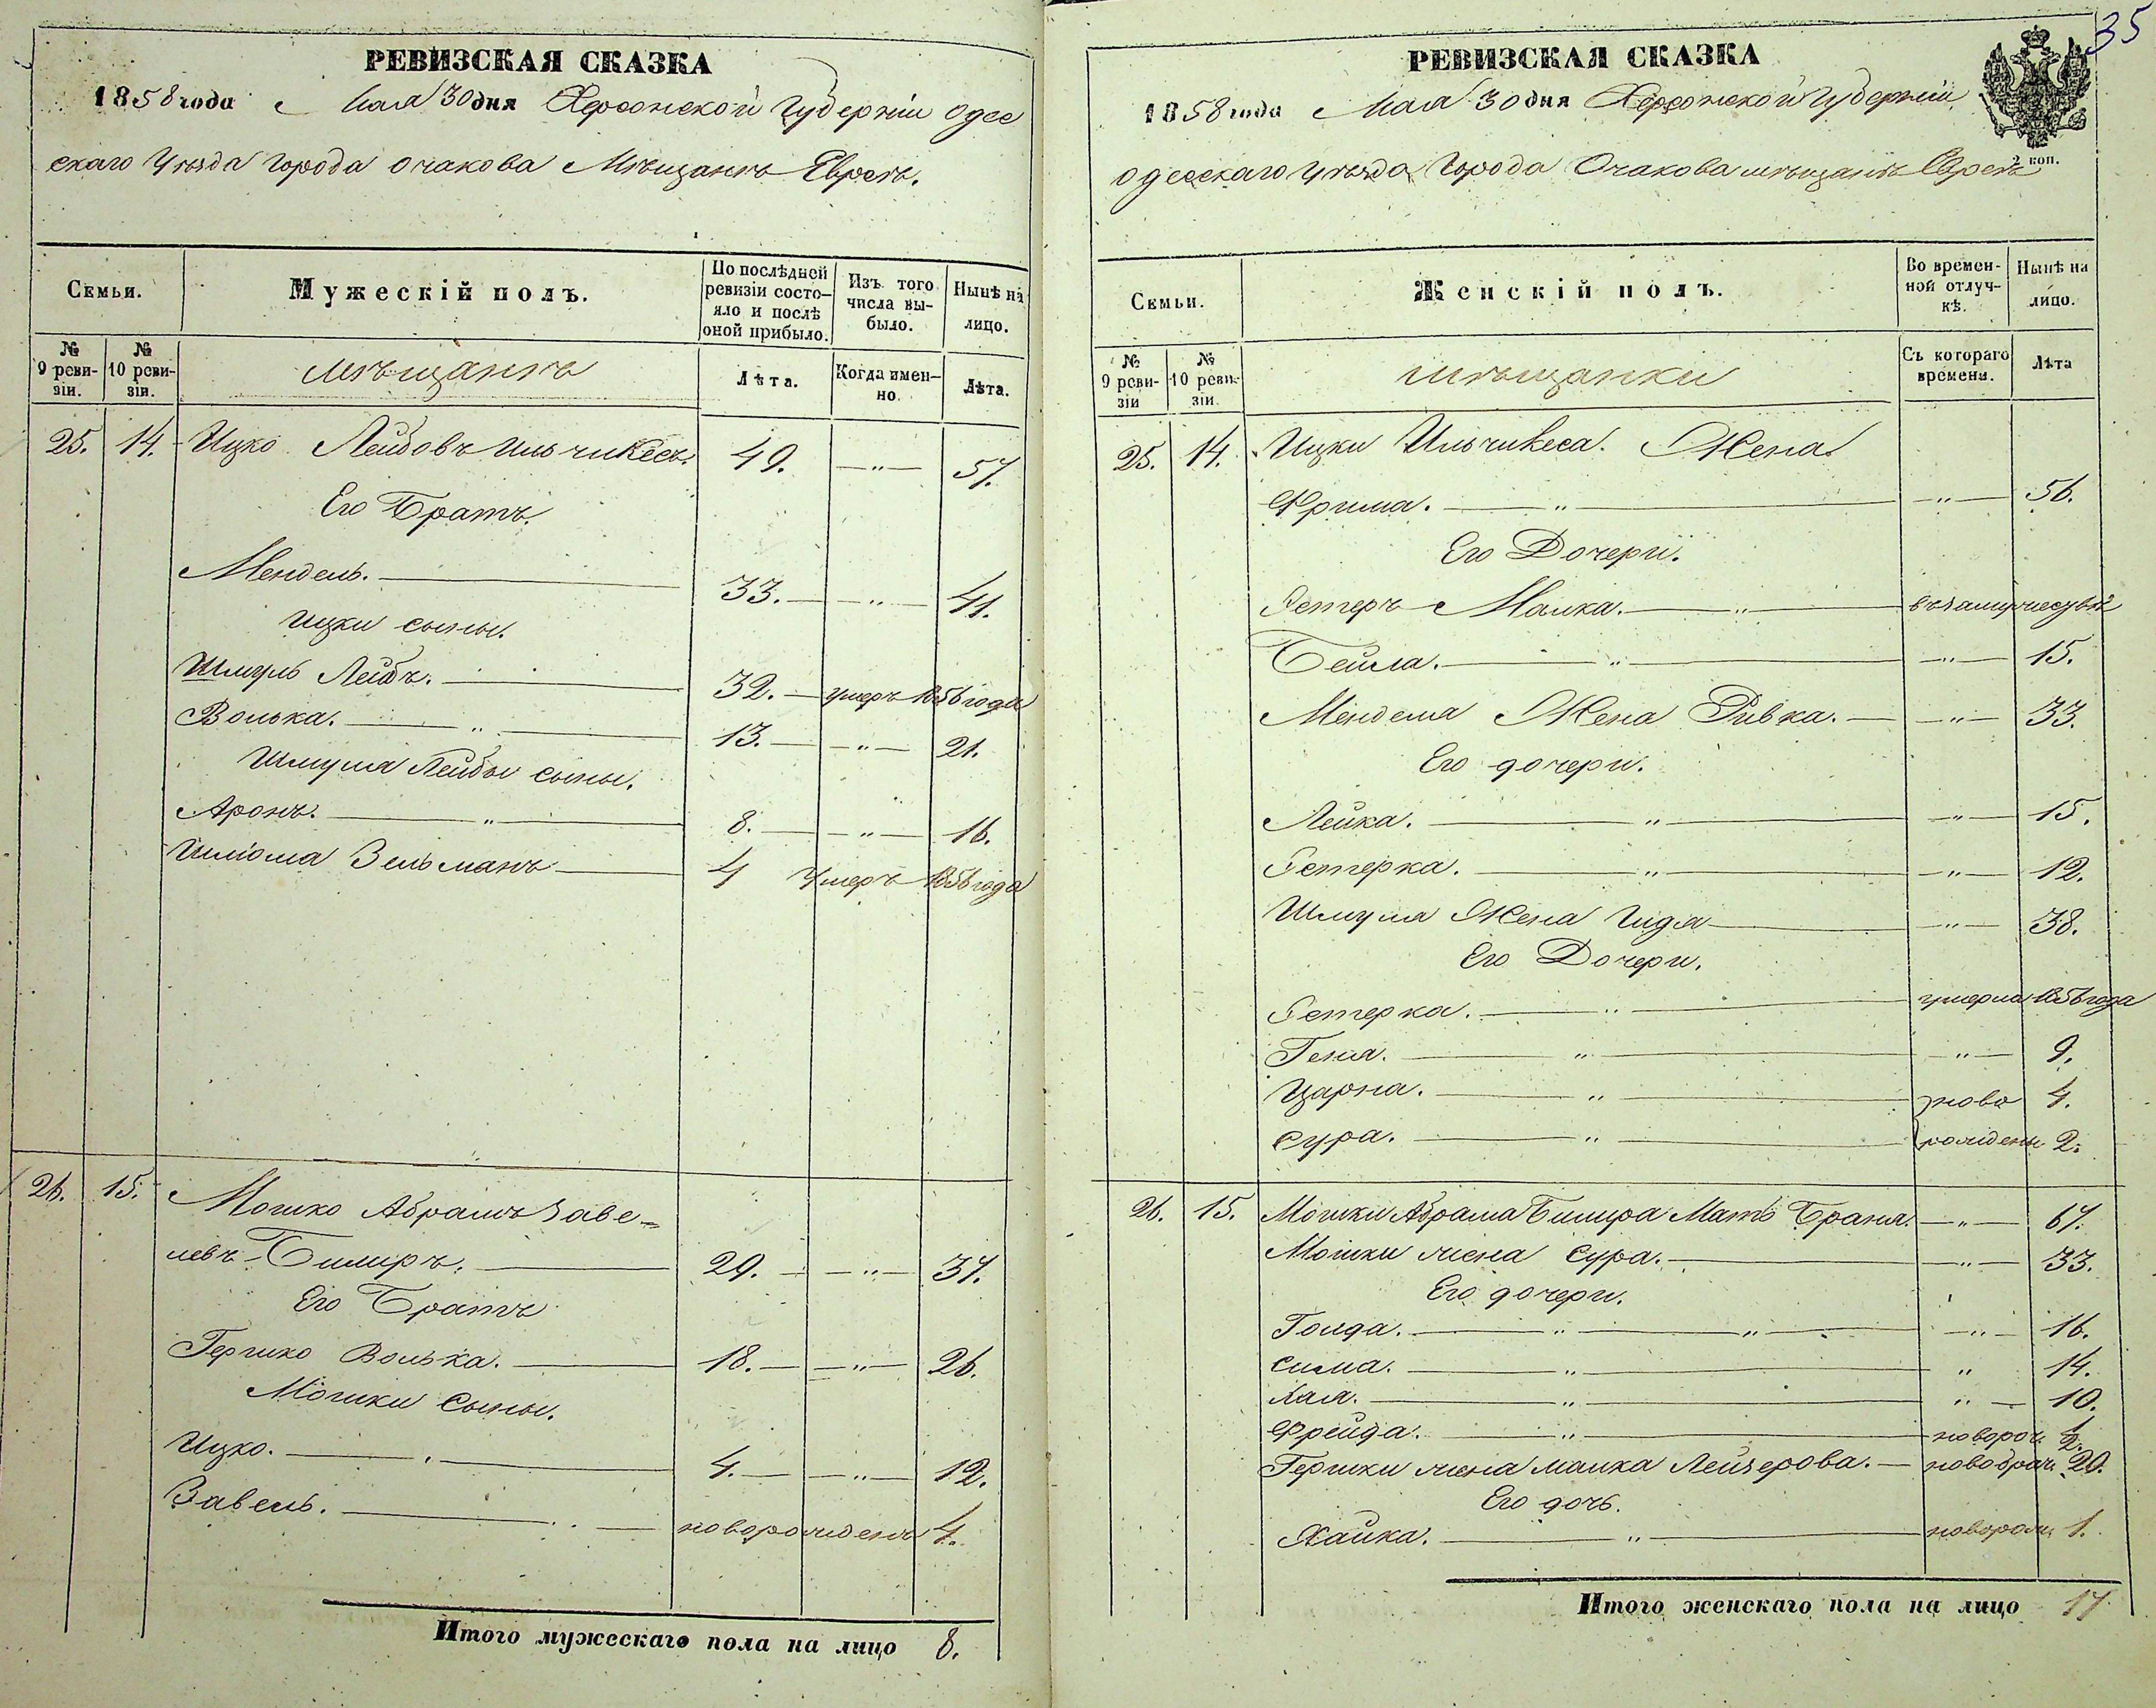 РЕВИЗСКАЯ СКАЗКА
1858 года Мая 30 дня Херсонской Губерніи Одес
скаго Уѣзда города Очакова Мѣщанъ Евреъ.
Семьи.
Мужескій полъ.
По послѣдней ревизіи состояло и послѣ оной прибыло.
Изъ того числа выбыло.
Нынѣ на лицо.
№ 9 ревизіи.
№ 10 ревизіи.
мѣщанъ
Лѣта.
Когда именно.
Лѣта.
25. 14. Ицко Лейбовъ Ильчикесъ. 49. — " — 57.
Его Братъ.
Мендель. 33. — " — 41.
Ицки сыны.
Шмуль Лейбъ. 32. — умеръ 1856 года
Волька. " 13. — " — 21.
Шмуля Лейбы сыны.
Аронъ. " 8. — " — 16.
Шлiома Зельманъ 4 Умеръ 1856 года
26. 15. Мошко Абрамъ Заве-
левъ Билиръ. 29. — " — 37.
Его Братъ
Гершко Волька. 18. — " — 26.
Мошки Сыны.
Ицко. 4. — " — 12.
Завель. новорожденъ 4.
Итого мужескаго пола на лицо 8.
35
РЕВИЗСКАЯ СКАЗКА
1858 года Мая 30 дня Херсонской Губерніи
2 коп.
Одесскаго Уѣзда Города Очакова мѣщанъ Евреъ
Семьи.
Женскій полъ.
Во временной отлучкѣ.
Нынѣ на лицо.
№ 9 ревизіи
№ 10 ревизіи.
мѣщанки
Съ котораго времени.
Лѣта
25. 14. Ицки Ильчикеса. Жена.
Фрима. " — " — 56.
Его Дочери.
Эстеръ Малка. " въ замужествѣ
Бейла. " — " — 15.
Менделя Жена Ривка. — " — 33.
Его дочери.
Лейка. " — " — 15.
Эстерка. " — " — 12.
Шмуля Жена Гидя — " — 38.
Его Дочери.
Эстерка. " умерла 1856 года
Геня. " — " — 9.
Царна. " ново 4.
Сура. " рождены 2.
26. 15. Мошки Абрама Билира Мать Браня. — " — 67.
Мошки жена Сура. — " — 33.
Его дочери.
Голда. " " — " — 16.
Сима. " " 14.
Хая. " " — 10.
Фрейда. " новорож. 1/2.
Гершки жена Малка Лейзерова. — новобрач. 20.
Его дочь.
Хайка. " новорож. 1.
Итого женскаго пола на лицо 17.